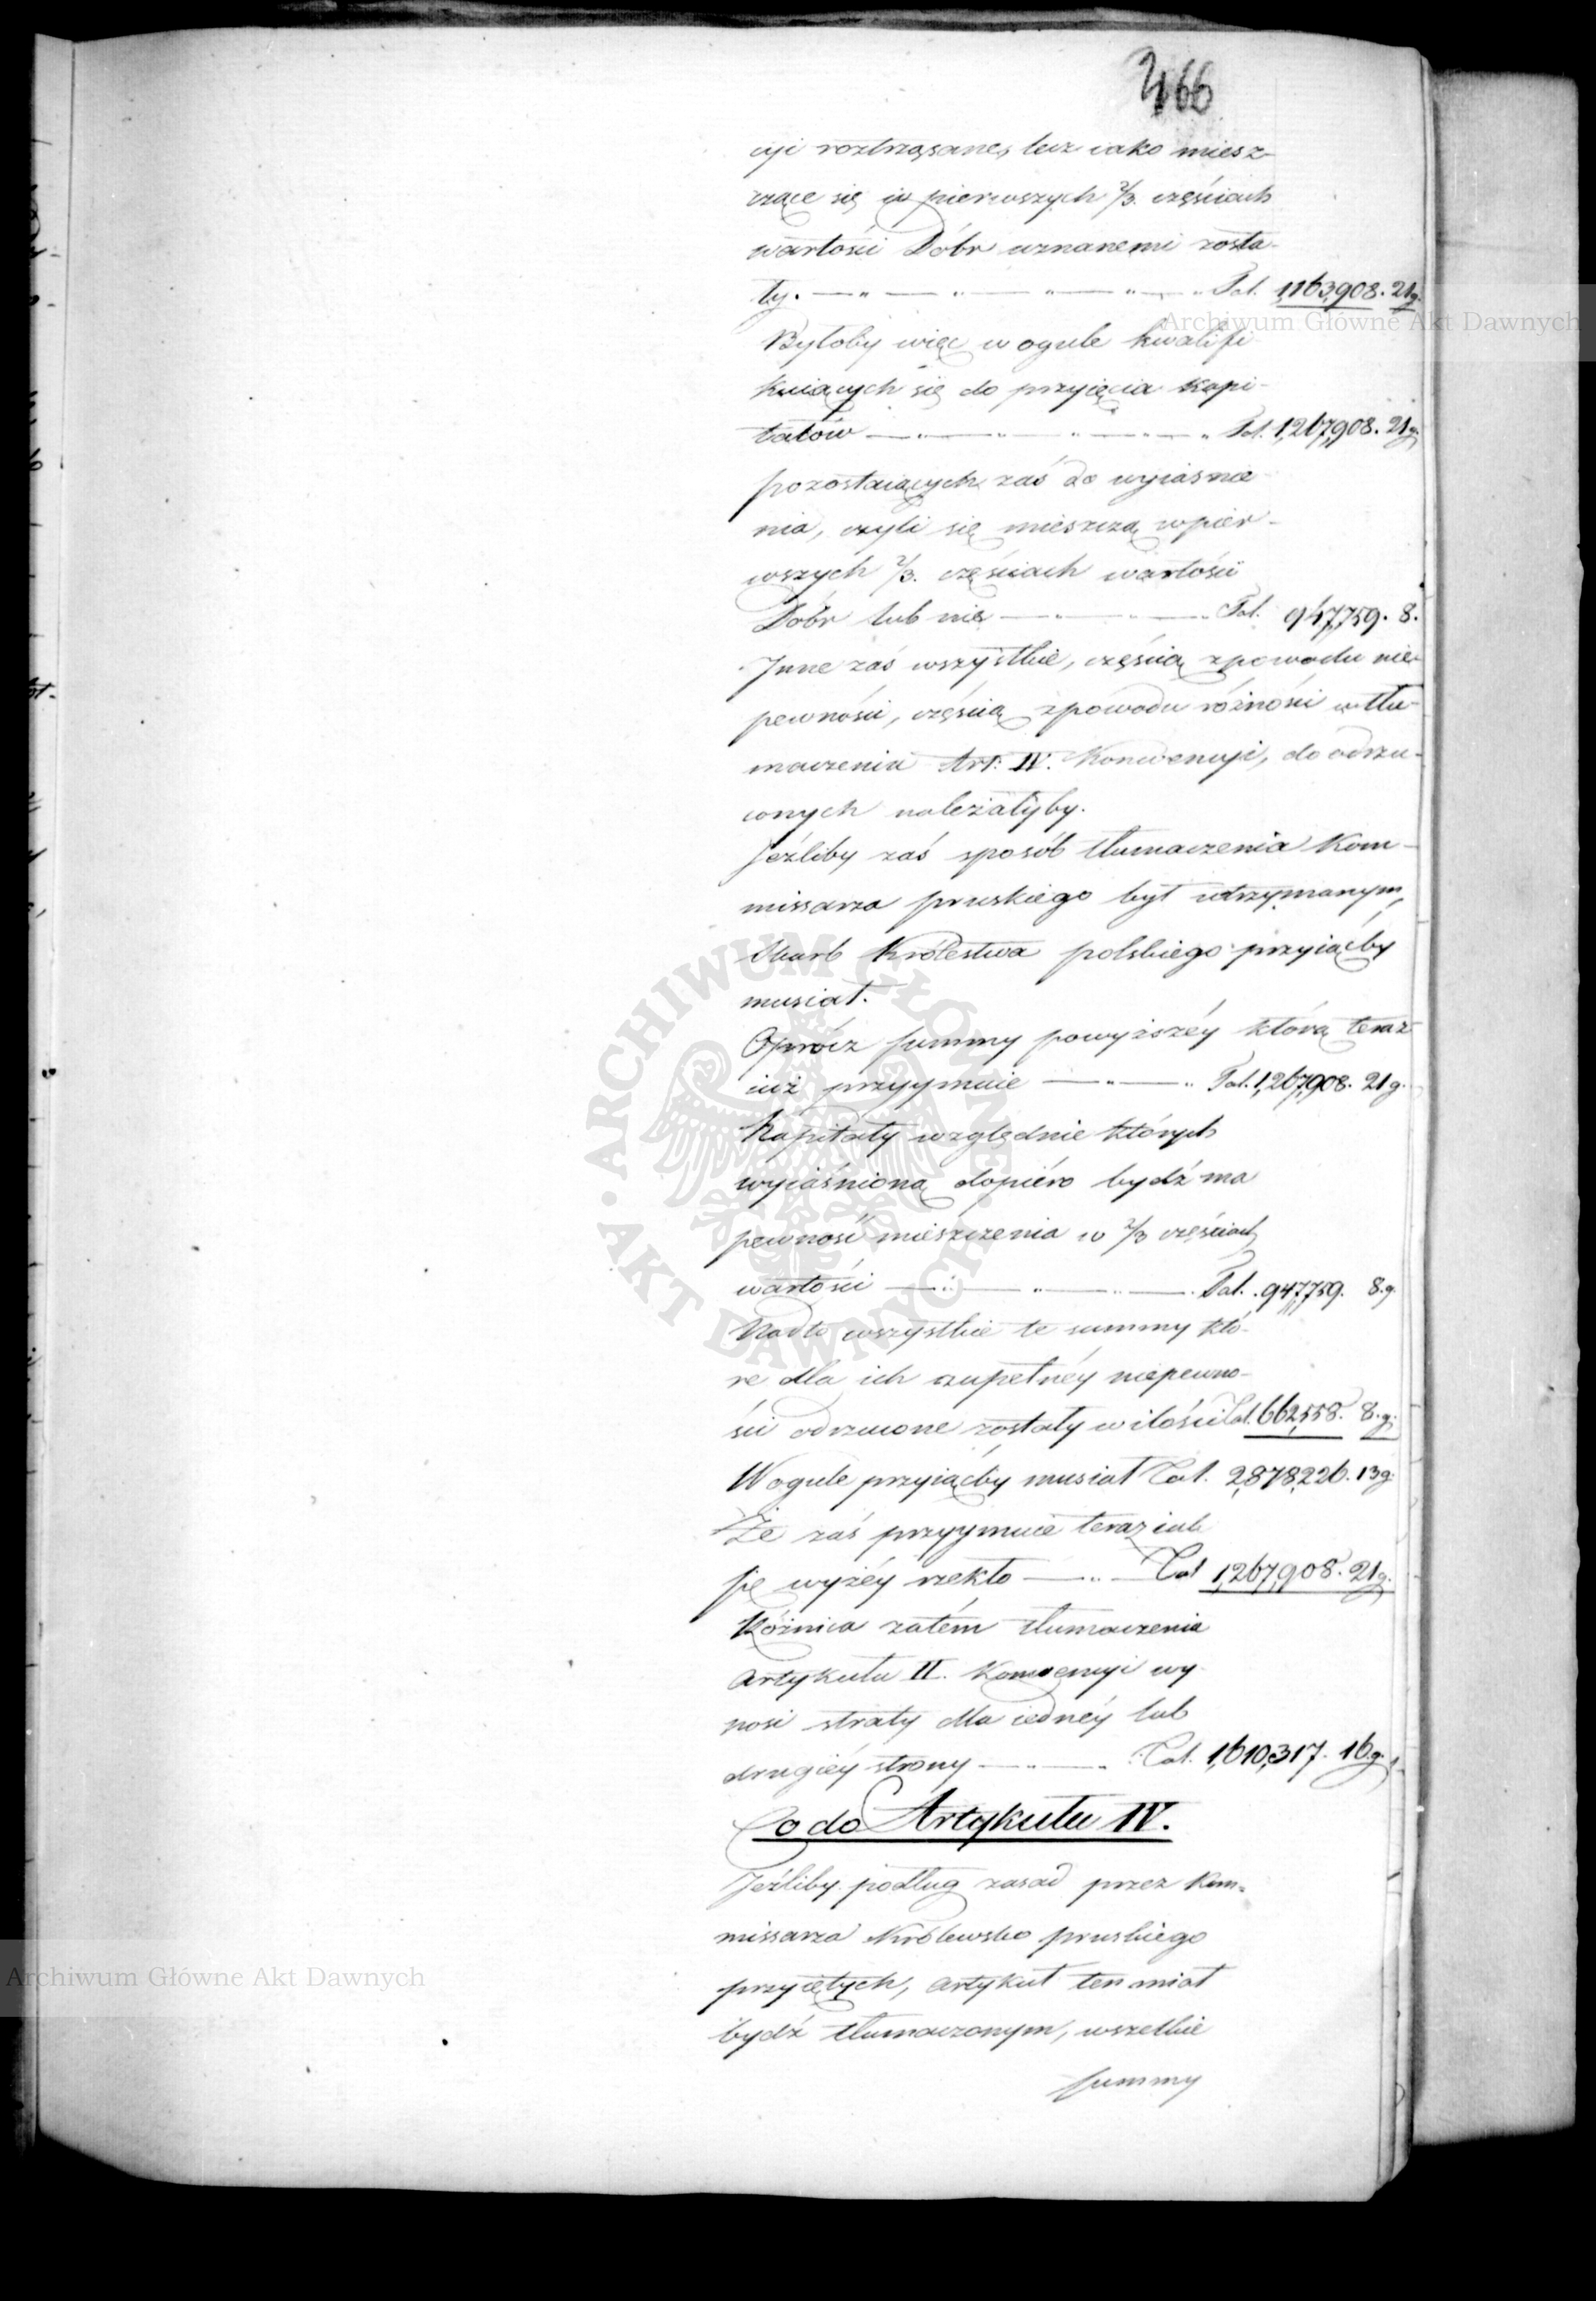 466
cyi roztrząsane, lecz iako miesz-
czące się w pierwszych 2/3. częściach
wartości Dóbr uznanemi zosta-
ły. — „ — „ — „ — „ — „ Tal. 1,163,908. 21 g.
Archiwum Główne Akt Dawnych
Byłoby więc w ogule kwalifi-
kuiących się do przyięcia kapi-
tałów — „ — „ — „ — „ Tal. 1,267,908. 21 g.
pozostaiących zaś do wyiaśnie-
nia, czyli się mieszczą w pier-
wszych 2/3. częściach wartości
Dóbr lub nie — „ — „ — „ Tal. 947,759. 8.
Inne zaś wszystkie, częścią z powodu nie-
pewności, częścią z powodu różności w tłu-
maczeniu Art: IV. Konwencyi, do odrzu-
conych należałyby.
Jeźliby zaś sposób tłumaczenia Kom-
missarza pruskiego był utrzymanym,
Skarb Królestwa polskiego przyiąćby
musiał.
Oprócz summy powyższéy którą teraz
iuż przyymuie — „ — „ Tal. 1,267,908. 21 g.
Kapitały względnie których
wyiaśnioną dopiéro bydź ma
pewność mieszczenia w 2/3 częściach
wartości — „ — „ — „ — Tal. 947,759. 8. g.
Nadto wszystkie te summy któ-
re dla ich zupełnéy niepewno-
ści odrzucone zostały w ilości Tal. 662,558. 8. g.
W ogule przyiąćby musiał Tal. 2,878,226. 13 g.
Że zaś przyymuie teraz iak
się wyżéy rzekło — „ — Tal 1,267,908. 21 g.
Różnica zatém tłumaczenia
Artykułu II. Konwencyi wy-
nosi straty dla iednéy lub
drugiéy strony — „ — „ Tal. 1,610,317. 16 g.
Co do Artykułu IV.
Jeźliby podług zasad przez Kom-
missarza Królewsko pruskiego
przyiętych, artykuł ten miał
Archiwum Główne Akt Dawnych
bydź tłumaczonym, wszelkie
summy
ARCHIWUM GŁÓWNE
AKT DAWNYCH